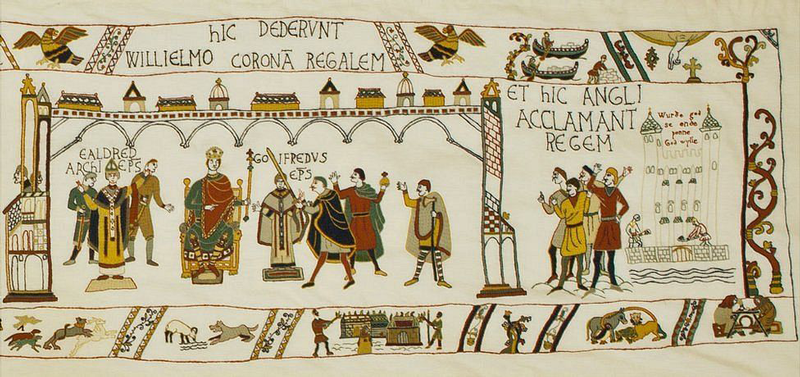 hIC DEDERVNT
WILLIELMO CORONĀ REGALEM
EALDRED
ARCHIEPS
GOIFREDVS
EPS
ET hIC ANGLI
ACCLAMANT
REGEM
Wurðe god
se ende
þonne
God wylle